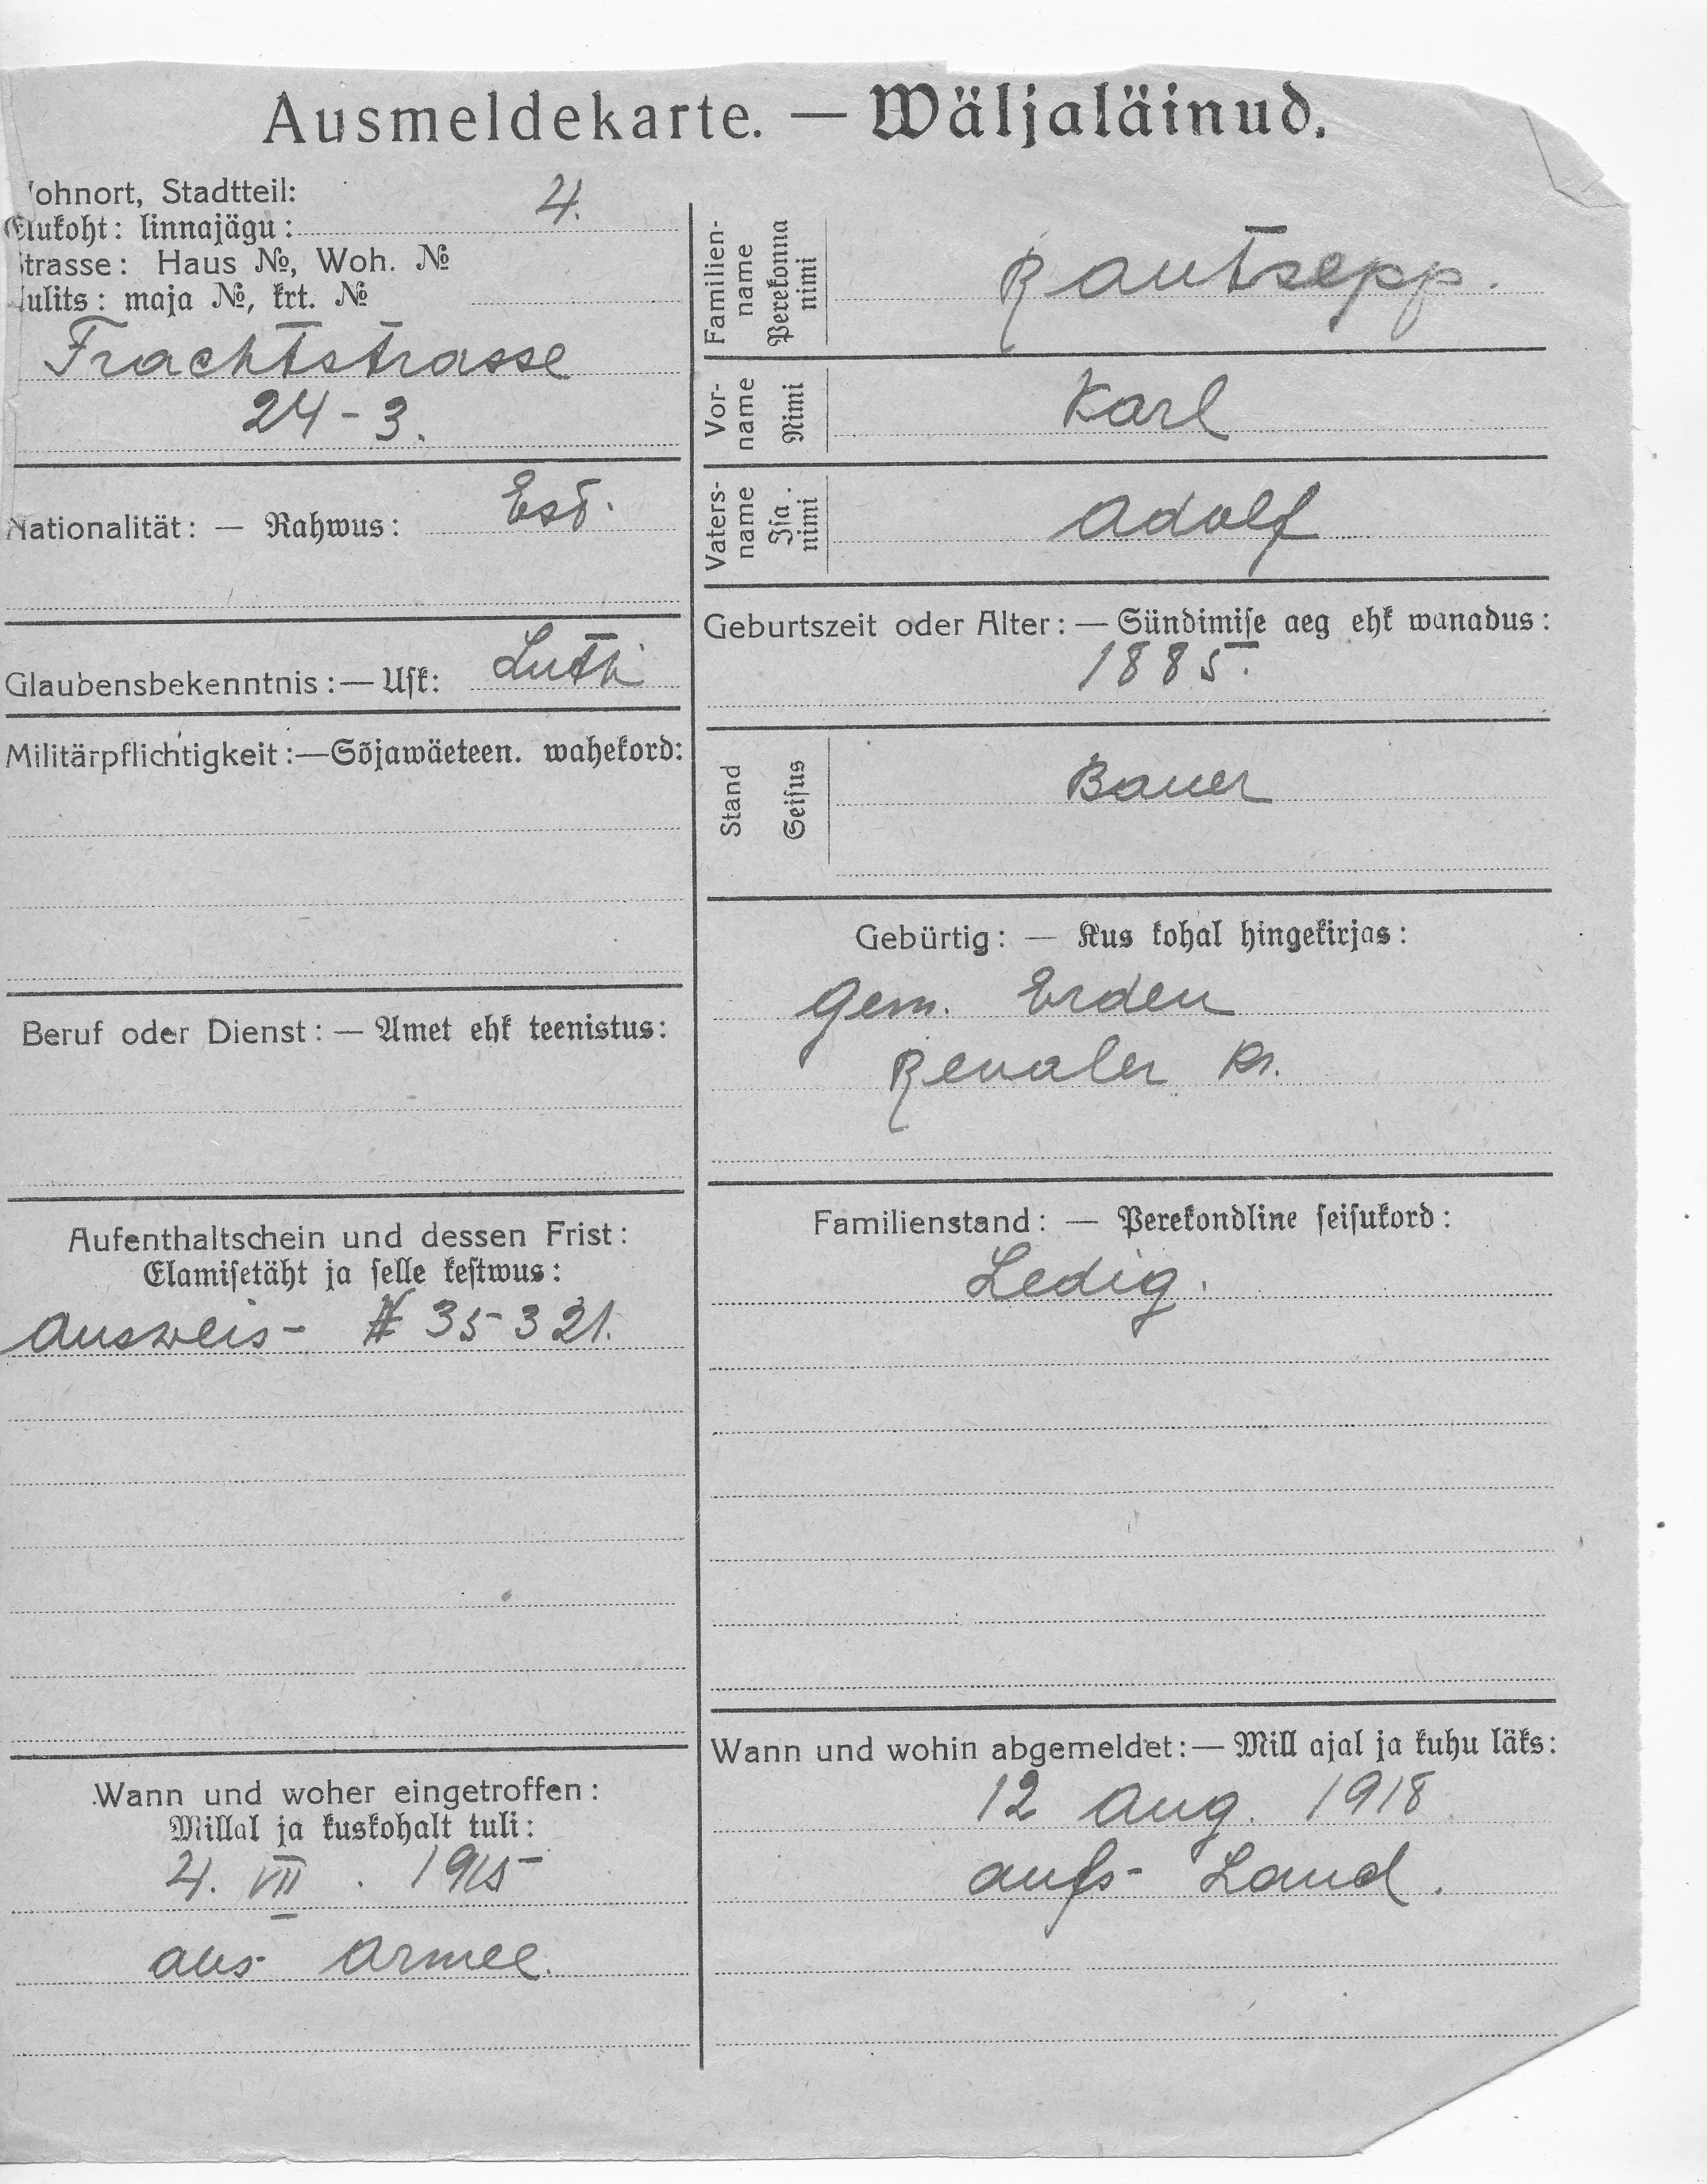 Ausmeldekarte. — Wäljaläinud.
ohnort, Stadtteil:
Elukoht: linnajägu: 4.
trasse: Haus №, Woh. №
ulits: maja №, krt. №
Frachtstrasse
24-3.
Nationalität: — Rahwus: Est.
Glaubensbekenntnis: — Usk: Luth.
Militärpflichtigkeit: — Sõjawäeteen. wahekord:
Beruf oder Dienst: — Amet ehk teenistus:
Aufenthaltschein und dessen Frist:
Elamisetäht ja selle kestwus:
Ausweis- № 35321.
Wann und woher eingetroffen:
Millal ja kuskohalt tuli:
4. VII. 1915
aus Armee.
Familien-
name
Perekonna
nimi
Rautsepp.
Vor-
name
Nimi
Karl
Vaters-
name
Isa
nimi
Adolf
Geburtszeit oder Alter: — Sündimise aeg ehk wanadus:
1885.
Stand
Seisus
Bauer
Gebürtig: — Kus kohal hingekirjas:
Gem. Erden
Revaler Kr.
Familienstand: — Perekondline seisukord:
Ledig.
Wann und wohin abgemeldet: — Mill ajal ja kuhu läks:
12 Aug. 1918
aufs Land.